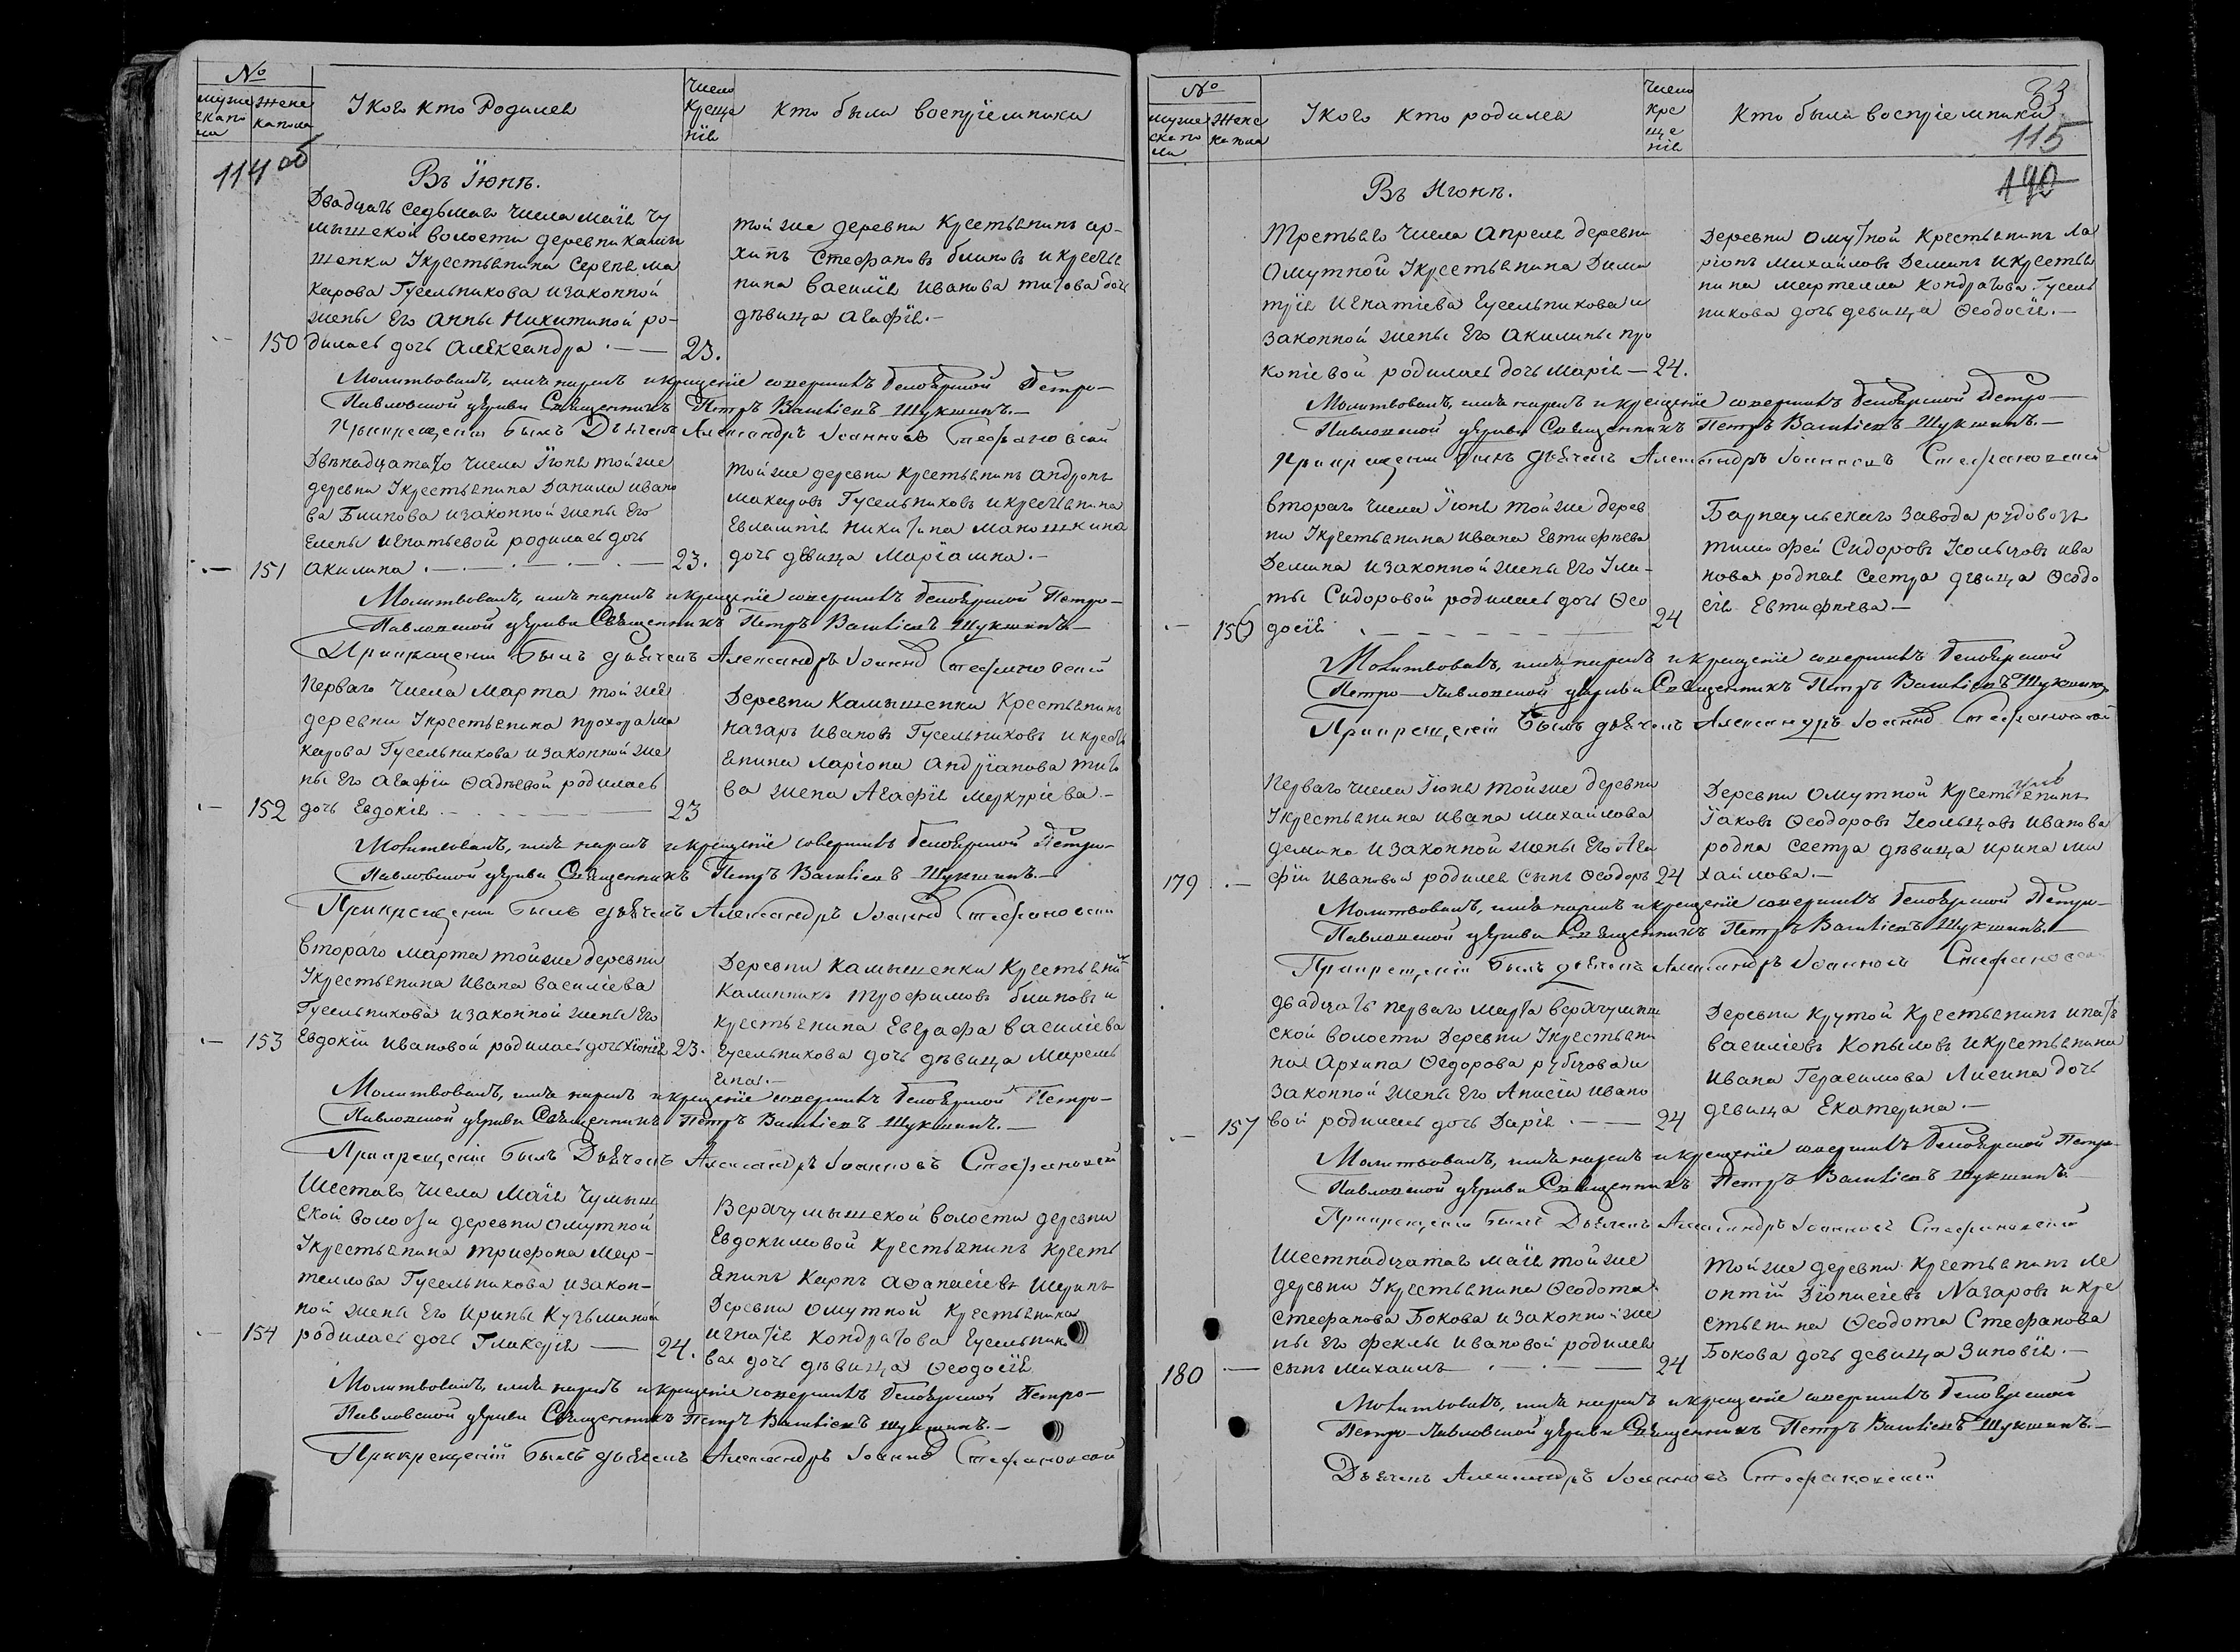 №
муже
ска по
ла
Женс
ка пола
У кого кто Родился
Число
Креще
нія
Кто были воспріемники
114 об
Въ Іюнѣ.
Двадцать седьмаго числа маія Чу
мышской волости деревни камы
шенки Укрестьянина Сергея Ма
карова Гусельникова изаконной
жены Его Анны Никитиной ро-
150 дилась дочь Александра . — — 23.
тойже деревни Крестьянинъ ар-
хипъ Стефановъ блиновъ икрестья
нина Василія Иванова титова дочь
дѣвица Агафія. —
Молитвовалъ, имя нарекъ икрещеніе совершилъ белоярской Петро-
Павловской церкви Священникъ Петръ Васильевъ Шукшинъ. —
Прикрещении былъ Дьячекъ Александръ Іоанновъ Стефановский
Двѣнадцатаго числа Іюня тойже
деревни Укрестьянина Данила ивано
ва Блинова изаконной жены Его
Елены игнатьевой родилась дочь
— 151 акилина . — . — . — . — 23.
тойже деревни крестьянинъ андронъ
макаровъ Гусельниковъ икрестьянина
Евлампія Никитина Маношкина
дочь дѣвица Маріамна. —
Молитвовалъ, имя нарекъ икрещеніе совершилъ белоярской Петро-
Павловской церкви Священникъ Петръ Васильевъ Шукшинъ. —
Прикрещении былъ дьячекъ Александръ Іоанновъ Стефановский
Перваго числа Марта тойже
деревни Укрестьянина прохора ма
карова Гусельникова изаконной же
ны Его Агафіи Фадѣевой родилась
— 152 дочь Евдокія . — — — — 23
Деревни Камышенки Крестьянинъ
назаръ Ивановъ Гусельниковъ икресть
янина Ларіона андріанова тито
ва жена Агафія Меркуріева. —
Молитвовалъ, имя нарекъ икрещеніе совершилъ белоярской Петро-
Павловской церкви Священникъ Петръ Васильевъ Шукшинъ. —
Прикрещении былъ дьячекъ Александръ Іоанновъ Стефановский
Втораго марта тойже деревни
Укрестьянина Ивана Василіева
Гусельникова изаконной жены Его
— 153 Евдокіи Ивановой родилась дочь Хіонія 23.
Деревни Камышенки Крестьянинъ
Калинникъ Трофимовъ блиновъ и
крестьянина Евграфа Василіева
Гусельникова дочь дѣвица Меремь
яна. —
Молитвовалъ, имя нарекъ икрещеніе совершилъ белоярской Петро-
Павловской церкви Священникъ Петръ Васильевъ Шукшинъ. —
Прикрещеніи былъ Дьячекъ Александръ Іоанновъ Стефановский
Шестаго числа Маія Чумыш
ской волости деревни омутной
Укрестьянина трифона Мар-
темлова Гусельникова изакон-
ной жены Его Ирины Кузьминой
— 154 родилась дочь Гликерія — 24.
Верхчумышской волости деревни
Евдокимовой Крестьянинъ кресть
янинъ Карпъ Афанасіевъ Шеринъ
деревни омутной Крестьянина
игнатія Кондратова Гусельнико
ва дочь дѣвица Феодосія
Молитвовалъ, имя нарекъ икрещеніе совершилъ белоярской Петро-
Павловской церкви Священникъ Петръ Васильевъ Шукшинъ. —
Прикрещеніи былъ дьячекъ Александръ Іоанновъ Стефановский
№
муже
ска по
ла
Женс
ка пола
У кого кто родился
Число
кре
ще
нія
Кто были воспріемники
33
115
190
Въ Июнѣ.
Третьяго числа Апреля деревни
Омутной Укрестьянина Дими
трія Игнатіева Гусельникова и
законной жены Его Акилины про
копіевой родилась дочь Марія — 24.
Деревни Омутной Крестьянинъ Ла
ріонъ Михайловъ Деминъ икрестья
нина мартемла Кондратова Гусель
никова дочь девица Феодосія. —
Молитвовалъ, имя нарекъ икрещеніе совершилъ белоярской Петро-
Павловской церкви Священникъ Петръ Васильевъ Шукшинъ. —
При крещении былъ дьячекъ Александръ Іоанновъ Стефановский
Втораго числа Іюня тойже дерев
ни Укрестьянина Ивана Евтифіева
Демина изаконной жены Его Ули-
ты Сидоровой родилась дочь Фео
— 156 досія . — — — — 24
Барнаульскаго завода рудовозъ
тимофей Сидоровъ Кольцовъ ива
новая родная сестра дѣвица Феодо
сія Евтифіева —
Молитвовалъ, имя нарекъ икрещеніе совершилъ белоярской
Петро-Павловской церкви Священникъ Петръ Васильевъ Шукшинъ
При крещеніи былъ дьячекъ Александръ Іоанновъ Стефановский
Перваго числа Іюня тойже деревни
Укрестьянина Ивана Михайлова
демина изаконной жены Его Ага
179 . — фіи Ивановой родился сынъ Феодоръ 24
Деревни Омутной Крестьянинъ
Іаковъ Феодоровъ Кольцовъ Иванова
родна сестра дѣвица ирина ми
хайлова. —
Молитвовалъ, имя нарекъ икрещеніе совершилъ белоярской Петро-
Павловской церкви Священникъ Петръ Васильевъ Шукшинъ. —
При крещеніи былъ дьячекъ Александръ Іоанновъ Стефановский
двадцать перваго Марта верхчумыш
ской волости Деревни Укрестьяни
на Архипа Федорова рубцова и
законной жены Его Анисіи Ивано
— 157 вой родилась дочь Дарія . — — 24
Деревни Крутой Крестьянинъ ипатъ
василіевъ Копыловъ икрестьянина
Ивана Герасимова Лисина дочь
девица Екатерина. —
Молитвовалъ, имя нарекъ икрещеніе совершилъ белоярской Петро-
Павловской церкви Священникъ Петръ Васильевъ Шукшинъ. —
При крещеніи былъ Дьячекъ Александръ Іоанновъ Стефановский
Шестнадцатаго маія тойже
деревни Укрестьянина Феодота
Стефанова Бокова изаконной же
ны Его феклы Ивановой родился
180 — сынъ Михаилъ . — . — 24
тойже деревни Крестьянинъ Ле
онтій Діонисіевъ Назаровъ икре
стьянина Феодота Стефанова
Бокова дочь девица Зиновія. —
Молитвовалъ, имя нарекъ икрещеніе совершилъ белоярской
Петро-Павловской церкви Священникъ Петръ Васильевъ Шукшинъ. —
Дьячекъ Александръ Іоанновъ Стефановский